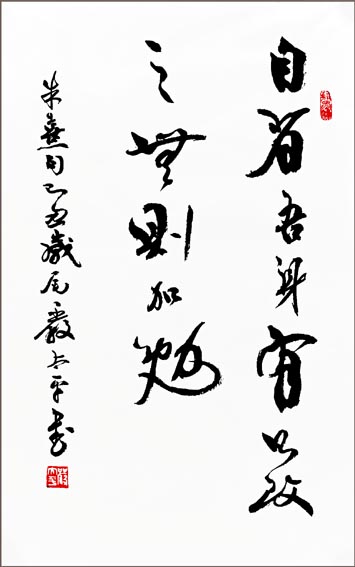 自省吾身有則改
之無則加勉
朱熹句己丑歲尾嚴太平書